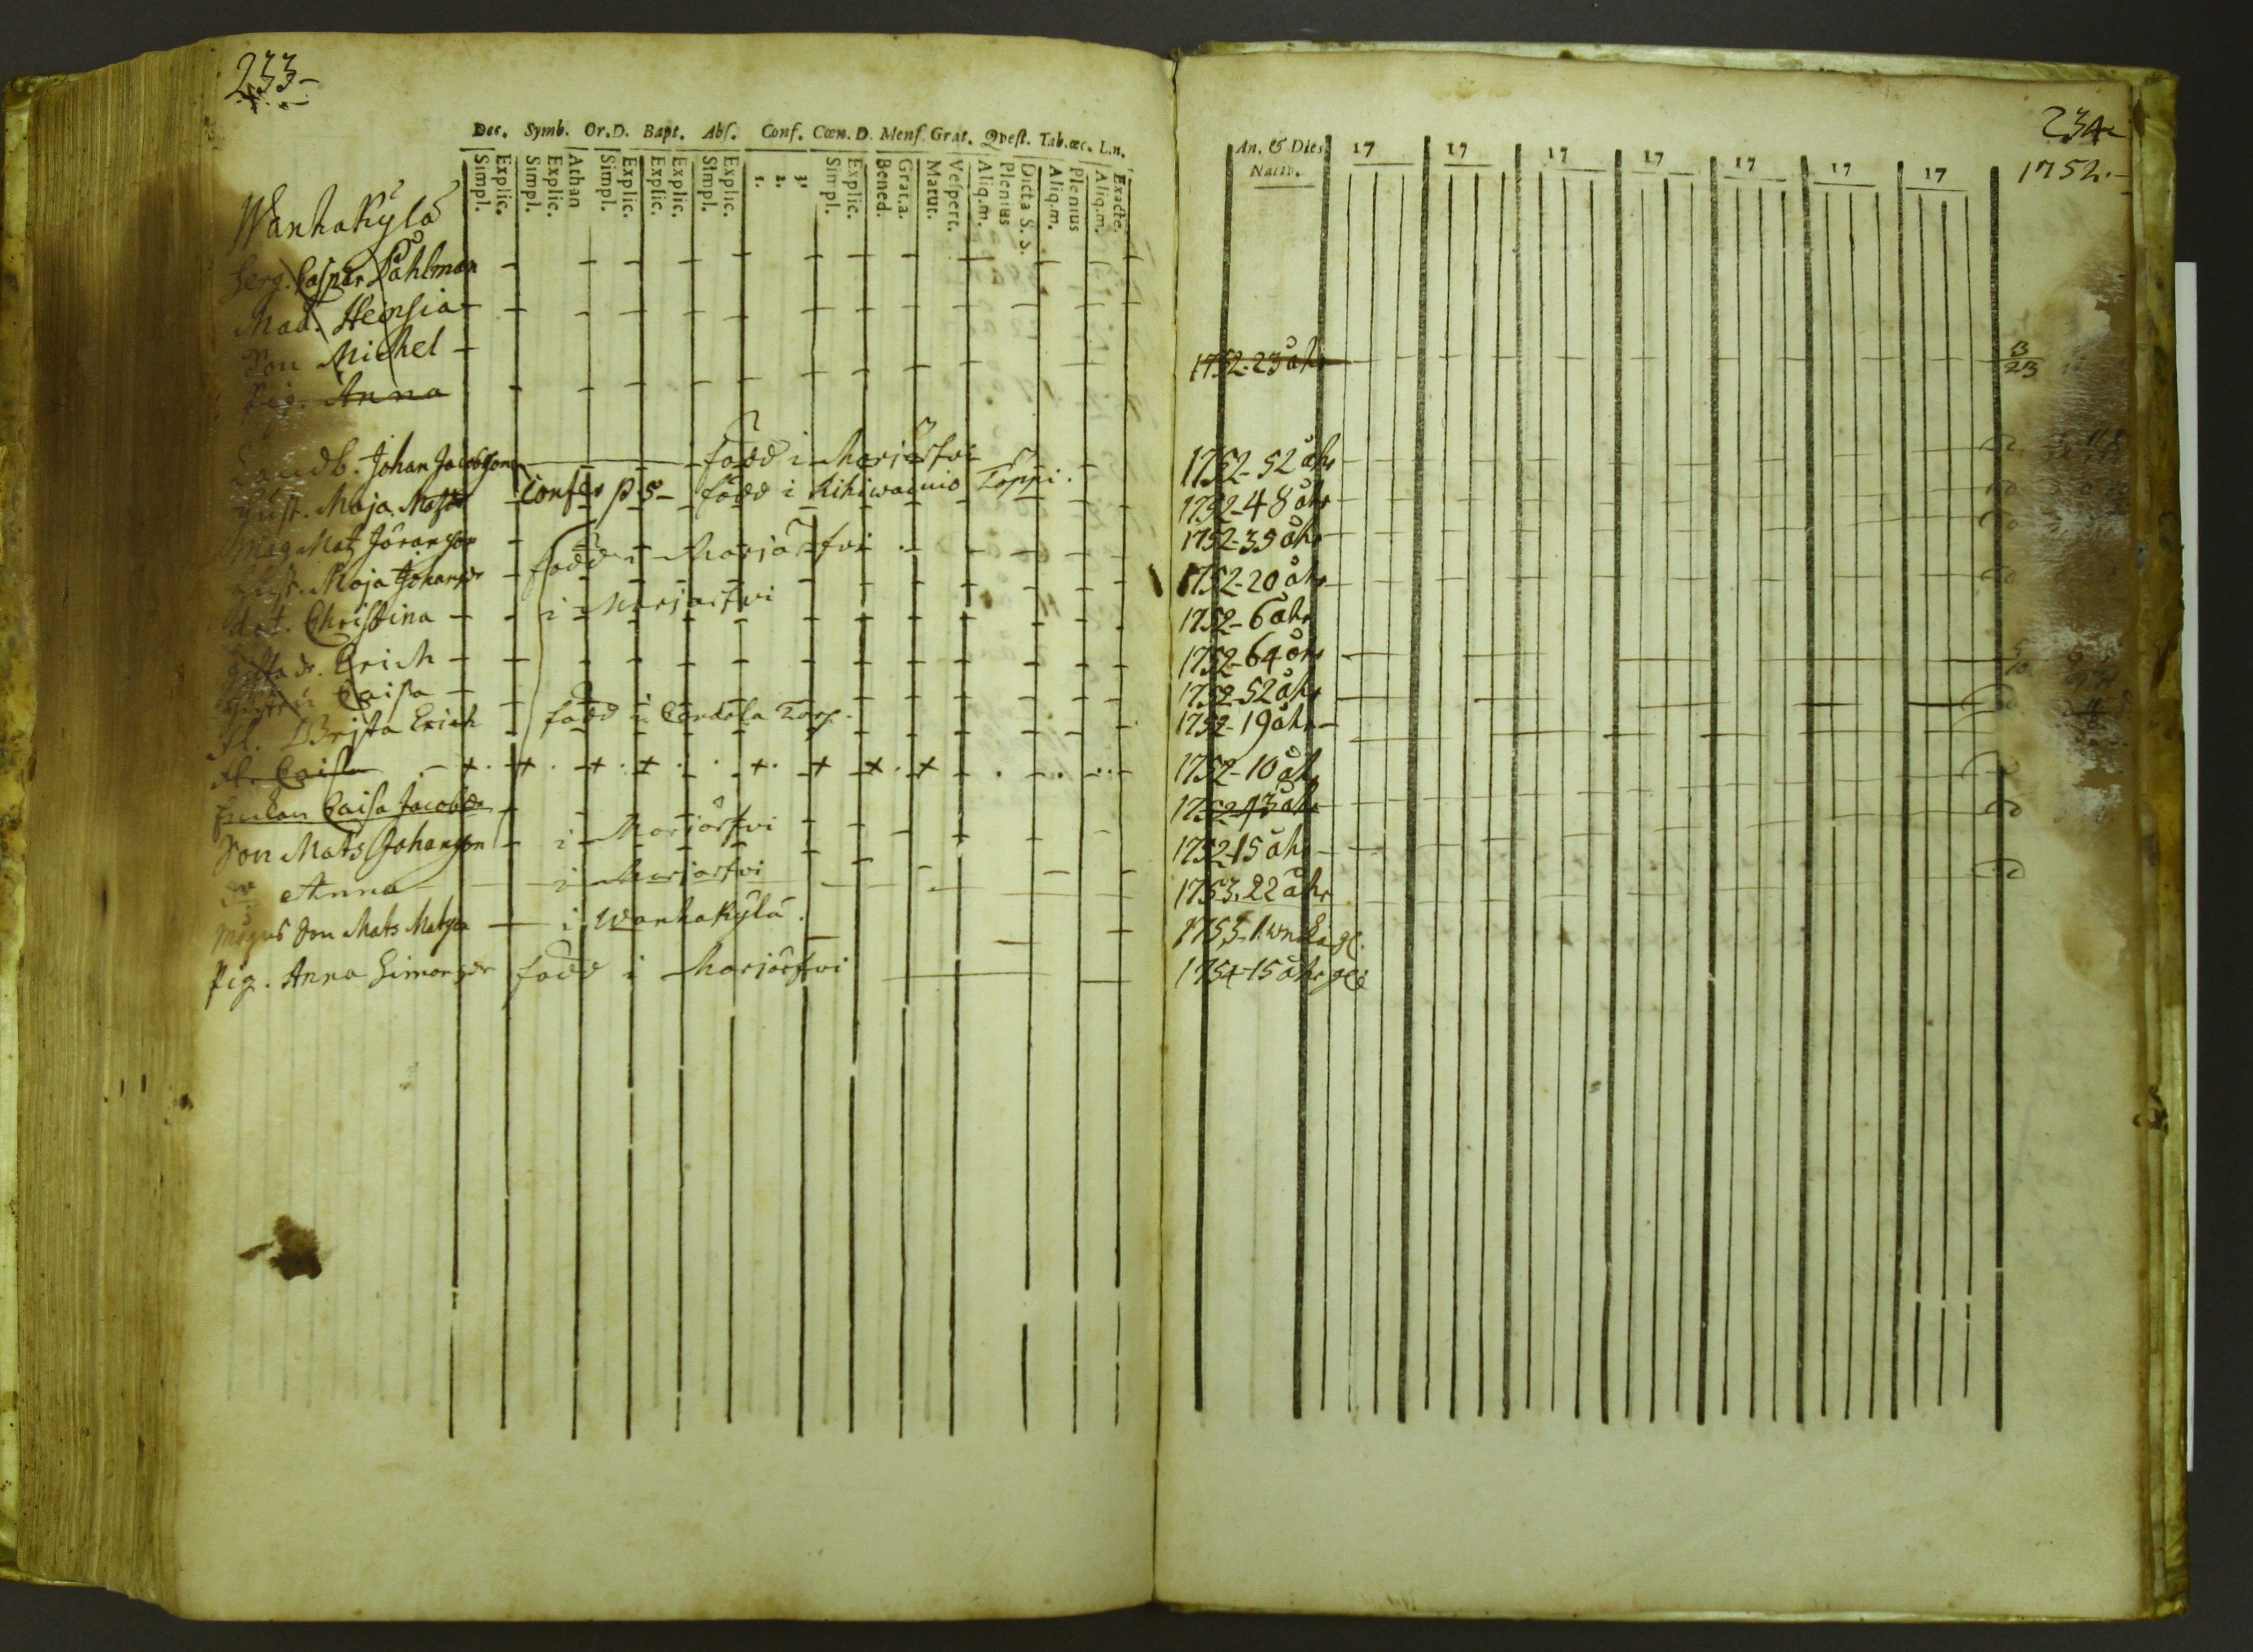 233
Dec. Symb. Or.D. Bapt. Abs. Conf. Cœn. D. Mens. Grat. Qvest. Tab.œc. L.n.
Simpl. Explic. Simpl. Explic. Athan Simpl. Explic. Explic. Explic. Simpl. Explic. 1. 2. 3. Simpl. Explic. Bened. Grat.a. Matut. Vespert. Aliq.m. Plenius Dicta S. S. Aliq.m. Plenius Aliq.m. Exacte.
Wanhakylä
Serg. Caspar Påhlman
Mad. Heinsia
Son Michel
Pig. Anna
Landb. Johan Jacobsson född i Marjärfvi
Hust. Maja Confer p 5 född i Kihiwacuio Toppi.
Måg Mats Jöransson
Hust. Maja Johansdr född i Marjärfvi
dot. Christina i Marjärfvi
Erich
Caisa
Brita Erich född i Torp.
Caisa
Enkan Caisa Jacobsdr
Son Mats Johansson i Marjärfvi
Anna i Marjärfvi
Mågens Son Mats Matsson i Wanhakylä.
Pig. Anna Simonsdr född i Marjärfvi
234
1752.
An. & Dies Nativ. 17 17 17 17 17 17 17
1752-23 åhr
3
23
1752-52 åhr
1752-48 åhr
1752-35 åhr
1752-20 åhr
1752-6 åhr
1752-64 åhr
1752-52 åhr
1752-19 åhr
1752-10 åhr
1752-43 åhr
1752-15 åhr
1753-22 åhr
1753-1
1754-15 åhr